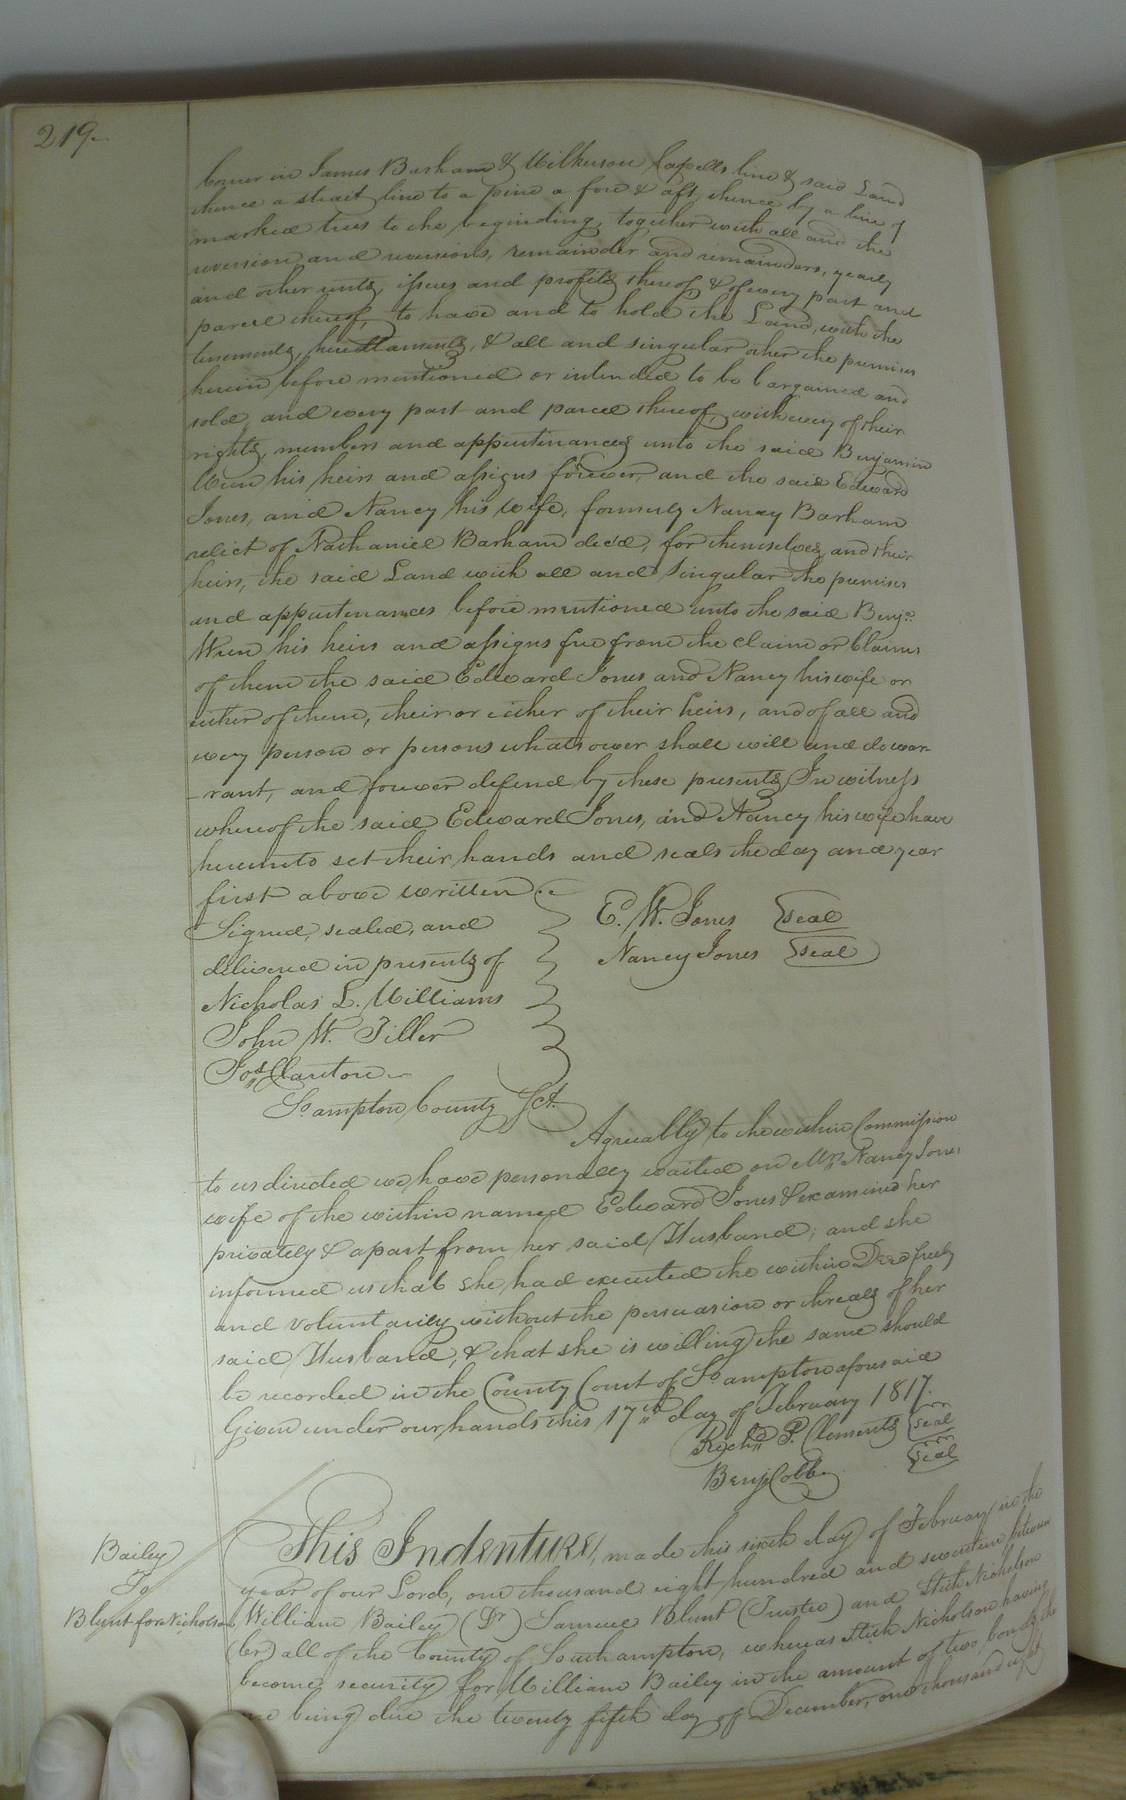 219.
Corner in James Barham & Wilkerson Capells line & said Land
thence a strait line to a pine a fore & aft, thence by a line of
marked trees to the beginding, together with all and the
reversion and reversions, remainder and remainders, yearly
and other rents, issues and profits thereof & of every part and
parcel thereof, to have and to hold the Land, with the
tenements, hereditaments, & all and singular other the premises
herein before mentioned or intended to be bargained and
sold, and every part and parcel thereof, with every of their
rights, members and appurtinances unto the said Benjamin
Wren his heirs and assigns forever, and the said Edward
Jones, and Nancy his wife, formerly Nancy Barham
relict of Nathaniel Barham dec'd, for themselves and their
heirs, the said Land with all and singular the premises
and appurtenances before mentioned unto the said Benjn.
Wren his heirs and assigns free from the claim or claims
of them the said Edward Jones and Nancy his wife or
either of them, their or either of their heirs, and of all and
every person or persons whatsoever shall will and do war-
-rant, and forever defend by these presents, In witness
whereof the said Edward Jones, and Nancy his wife have
hereunto set their hands and seals the day and year
first above written
Signed, sealed, and
delivered in presents of
Nicholas L. Williams
John W. Tiller
Jos. Clanton
E. W. Jones Seal
Nancy Jones Seal
So.ampton County Sct.
Agreeably to the within Commission
to us directed we have personally waited on Mrs. Nancy Jones
wife of the within named Edward Jones & examined her
privately & apart from her said Husband, and she
informed us that she had executed the within Deed freely
and voluntarily without the persuasion or threats of her
said Husband, & that she is willing the same should
be recorded in the County Court of So.ampton aforesaid
Given under our hands this 17th day of February 1817.
Richd. P. Clements Seal
Benj Cobb Seal
Bailey
To
Blunt for Nicholson
This Indenture, made this sixth day of February in the
year of our Lord, one thousand eight hundred and seventeen between
William Bailey (Dr) Samuel Blunt (Trustee) and Nicholson
(Cr) all of the County of Southampton, whereas Nicholson having
become security for William Bailey in the amount of two bonds the
one being due the twenty fifth day of December, one thousand eight